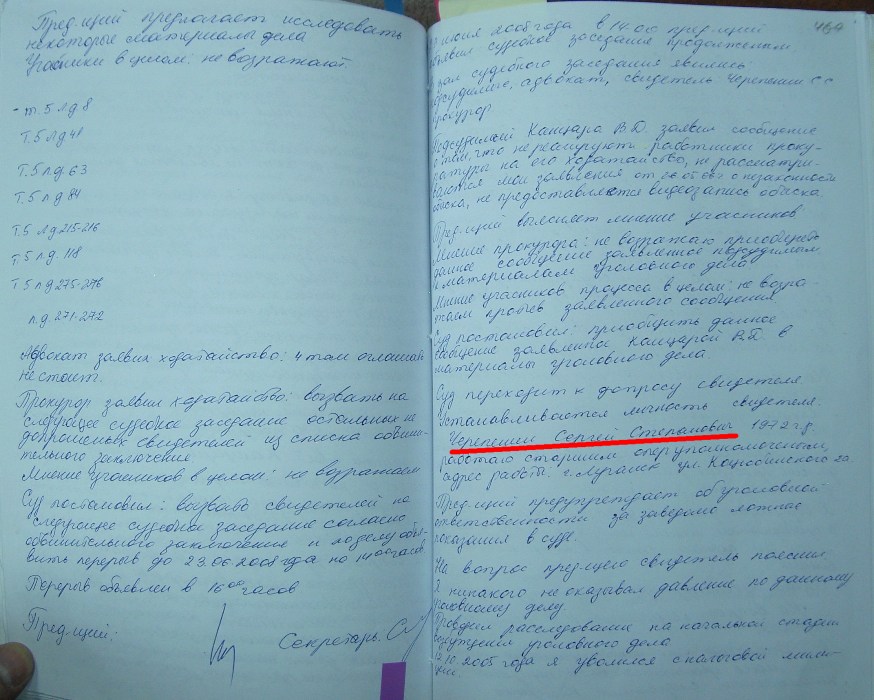 Пред-щий предлагает исследовать
некоторые материалы дела
Участники в целом: не возражают.
- т. 5 л д 8
Т. 5 л д 41
Т. 5 л.д. 63
Т. 5 л д 84
Т. 5 л д 215-216
Т 5 л д. 118
Т 5 л д 275-276
л.д 271-272
Адвокат заявил ходатайство: 4 том оглашать
не стоит.
Прокурор заявил ходатайство: вызвать на
следующее судебное заседание остальных не
допрошенных свидетелей из списка обвини-
тельного заключения.
Мнение участников в целом: не возражаем
Суд постановил: вызвать свидетелей на
следующее судебное заседание согласно
обвинительного заключения и
объя-
вить перерыв до 23.06.2008 года на 14 00 часов
Перерыв объявлен в 16 00 часов
Пред-щий:
Секретарь.
464
июня 2008 года в 14.00 пред-щий
объявил судебное заседание продолженым
В зал судебного заседания явились:
подсудимые, адвокат, свидетель Черепенин С С
прокурор
Подсудимый Канцара В.Д. заявил сообщение
о том, что не реагируют работники проку-
ратуры на его ходатайство, не рассматри-
ваются мои заявления от о незаконности
обыска, не предоставляется видеозапись обыска.
Пред-щий выясняет мнение участников
Мнение прокурора: не возражаю приобщить
данное сообщение заявленное подсудимым
к материалам уголовного дела
Мнение учасников процесса в целом: не возра-
жаем против заявленного сообщения
Суд постановил: приобщить данное
сообщение заявленное Канцарой В.Д. в
материалы уголовного дела.
Суд переходит к допросу свидетеля.
Устанавливается личность свидетеля.
Черепенин Сергей Степанович 1972 г.р.
работаю старшим оперуполномоченым,
адрес работы: г. Луганск ул. Коцюбинского 2а
Пред-щий предупреждает об уголовной
ответственности за заведомо ложные
показания в суде.
На вопрос пред-щего свидетель пояснил
Я никакого не оказывал давление по данному
уголовному делу
Проводил расследование на начальной стадии
возбуждения уголовного дела
12.10.2005 года я уволился с налоговой мили-
ции.